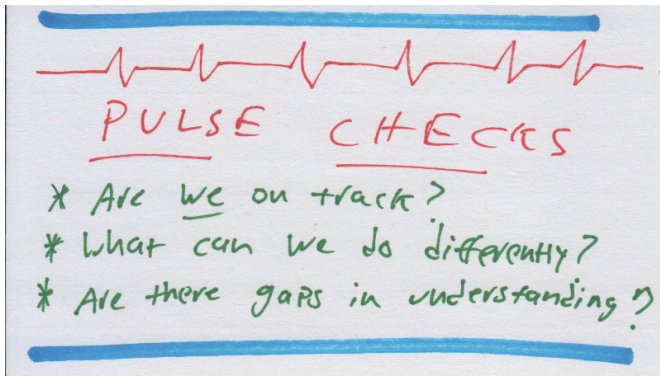 PULSE CHECKS
* Are we on track?
* What can we do differently?
* Are there gaps in understanding?